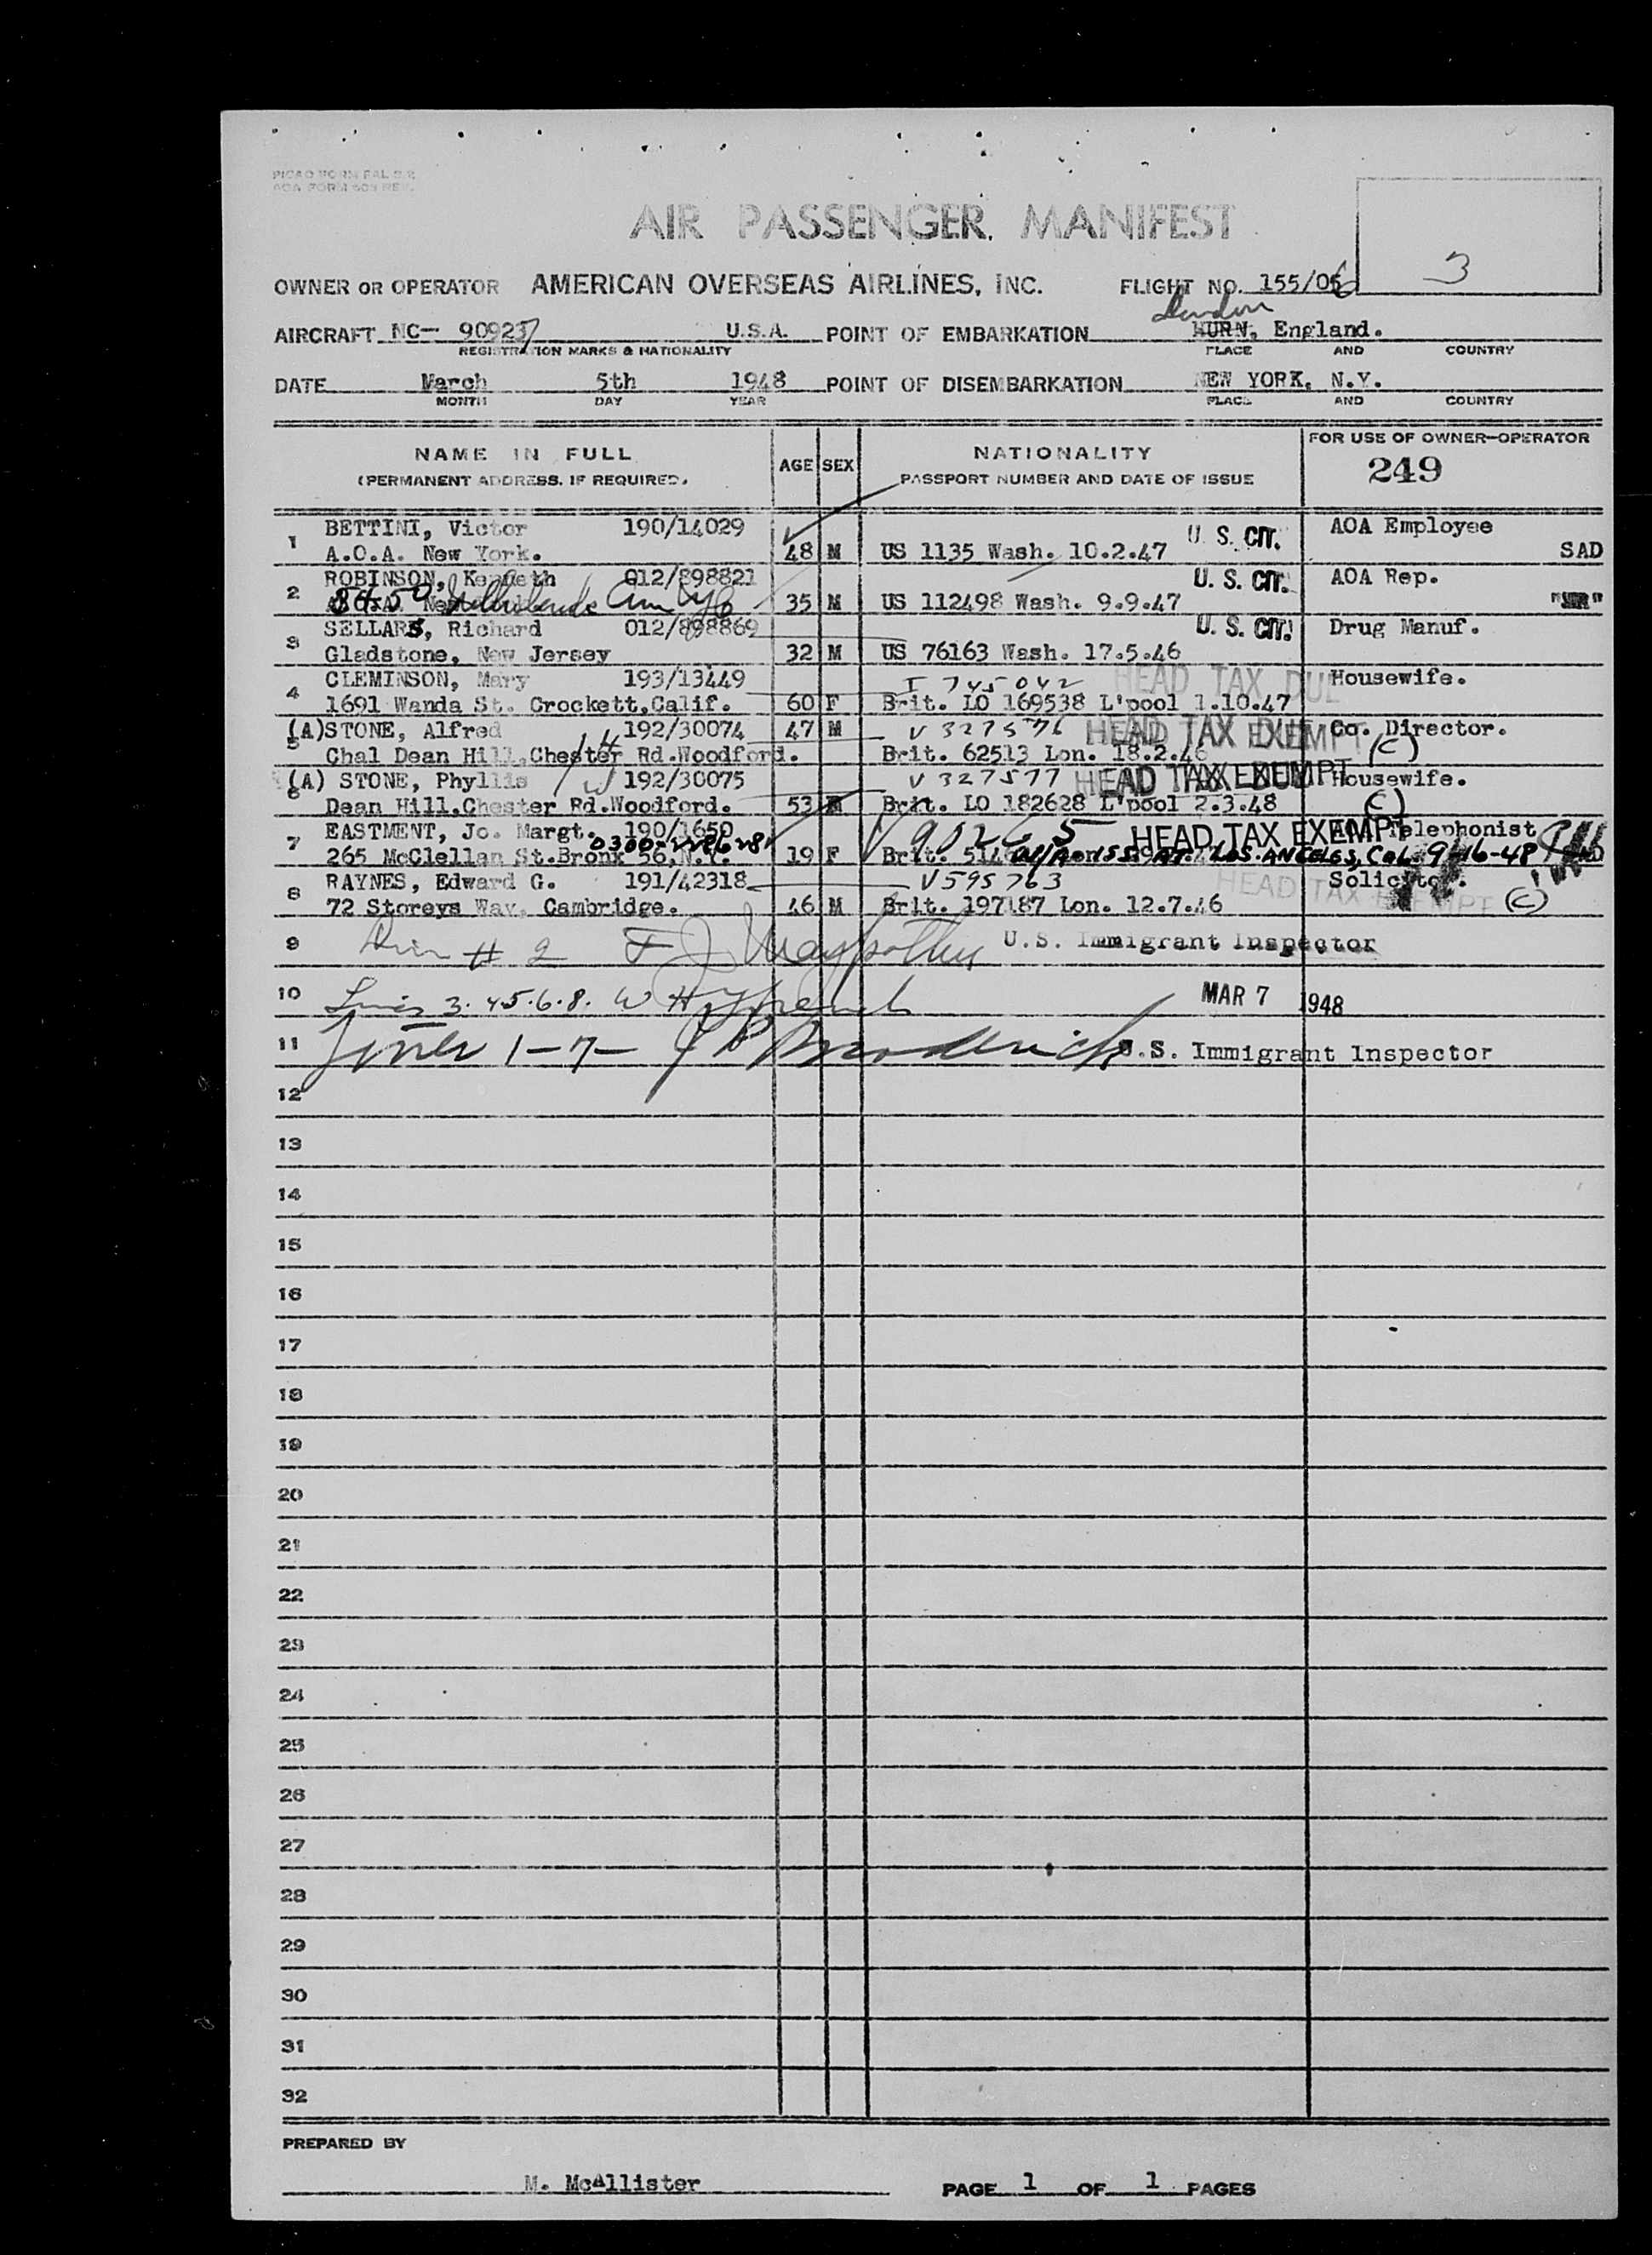 AIR PASSENGER MANIFEST
3
OWNER OR OPERATOR AMERICAN OVERSEAS AIRLINES, INC. FLIGHT NO. 155/06
London
AIRCRAFT NC- 90923 U.S.A. POINT OF EMBARKATION HURN, England.
REGISTRATION MARKS & NATIONALITY PLACE AND COUNTRY
DATE March 5th 1948 POINT OF DISEMBARKATION NEW YORK, N.Y.
MONTH DAY YEAR PLACE AND COUNTRY
NAME IN FULL AGE SEX NATIONALITY FOR USE OF OWNER-OPERATOR
(PERMANENT ADDRESS, IF REQUIRED) PASSPORT NUMBER AND DATE OF ISSUE 249
1 BETTINI, Victor 190/14029 U. S. CIT. AOA Employee
A.O.A. New York. 48 M US 1135 Wash. 10.2.47 SAD
2 ROBINSON, Kenneth 012/898821 U. S. CIT. AOA Rep.
35 M US 112498 Wash. 9.9.47
3 SELLARS, Richard 012/898869 U. S. CIT. Drug Manuf.
Gladstone, New Jersey 32 M US 76163 Wash. 17.5.46
4 CLEMINSON, Mary 193/13449 I 745042 HEAD TAX DUE Housewife.
1691 Wanda St. Crockett, Calif. 60 F Brit. LO 169538 L'pool 1.10.47
5 (A)STONE, Alfred 192/30074 47 M V 327576 HEAD TAX EXEMPT Co. Director.
Chal Dean Hill, Chester Rd. Woodford. Brit. 62513 Lon. 18.2.46 (C)
6 (A) STONE, Phyllis 192/30075 V 327577 HEAD TAX EXEMPT Housewife.
Dean Hill, Chester Rd. Woodford. 53 Brit. LO 182628 L'pool 2.3.48 (C)
7 EASTMENT, Jo. Margt. 190/1650 HEAD TAX EXEMPT Telephonist
265 McClellan St. Bronx 56, N.Y. 19 F Brit. LOS ANGELES, CAL. 9-16-48
8 RAYNES, Edward G. 191/42318 V595763 Solicitor.
72 Storeys Way, Cambridge. 46 M Brit. 197187 Lon. 12.7.46 HEAD TAX EXEMPT (C)
9 # 2 U.S. Immigrant Inspector
10 Lines 3. 4.5.6.8. MAR 7 1948
11 Lines 1-7- U.S. Immigrant Inspector
12
13
14
15
16
17
18
19
20
21
22
23
24
25
26
27
28
29
30
31
32
PREPARED BY
M. McAllister PAGE 1 OF 1 PAGES